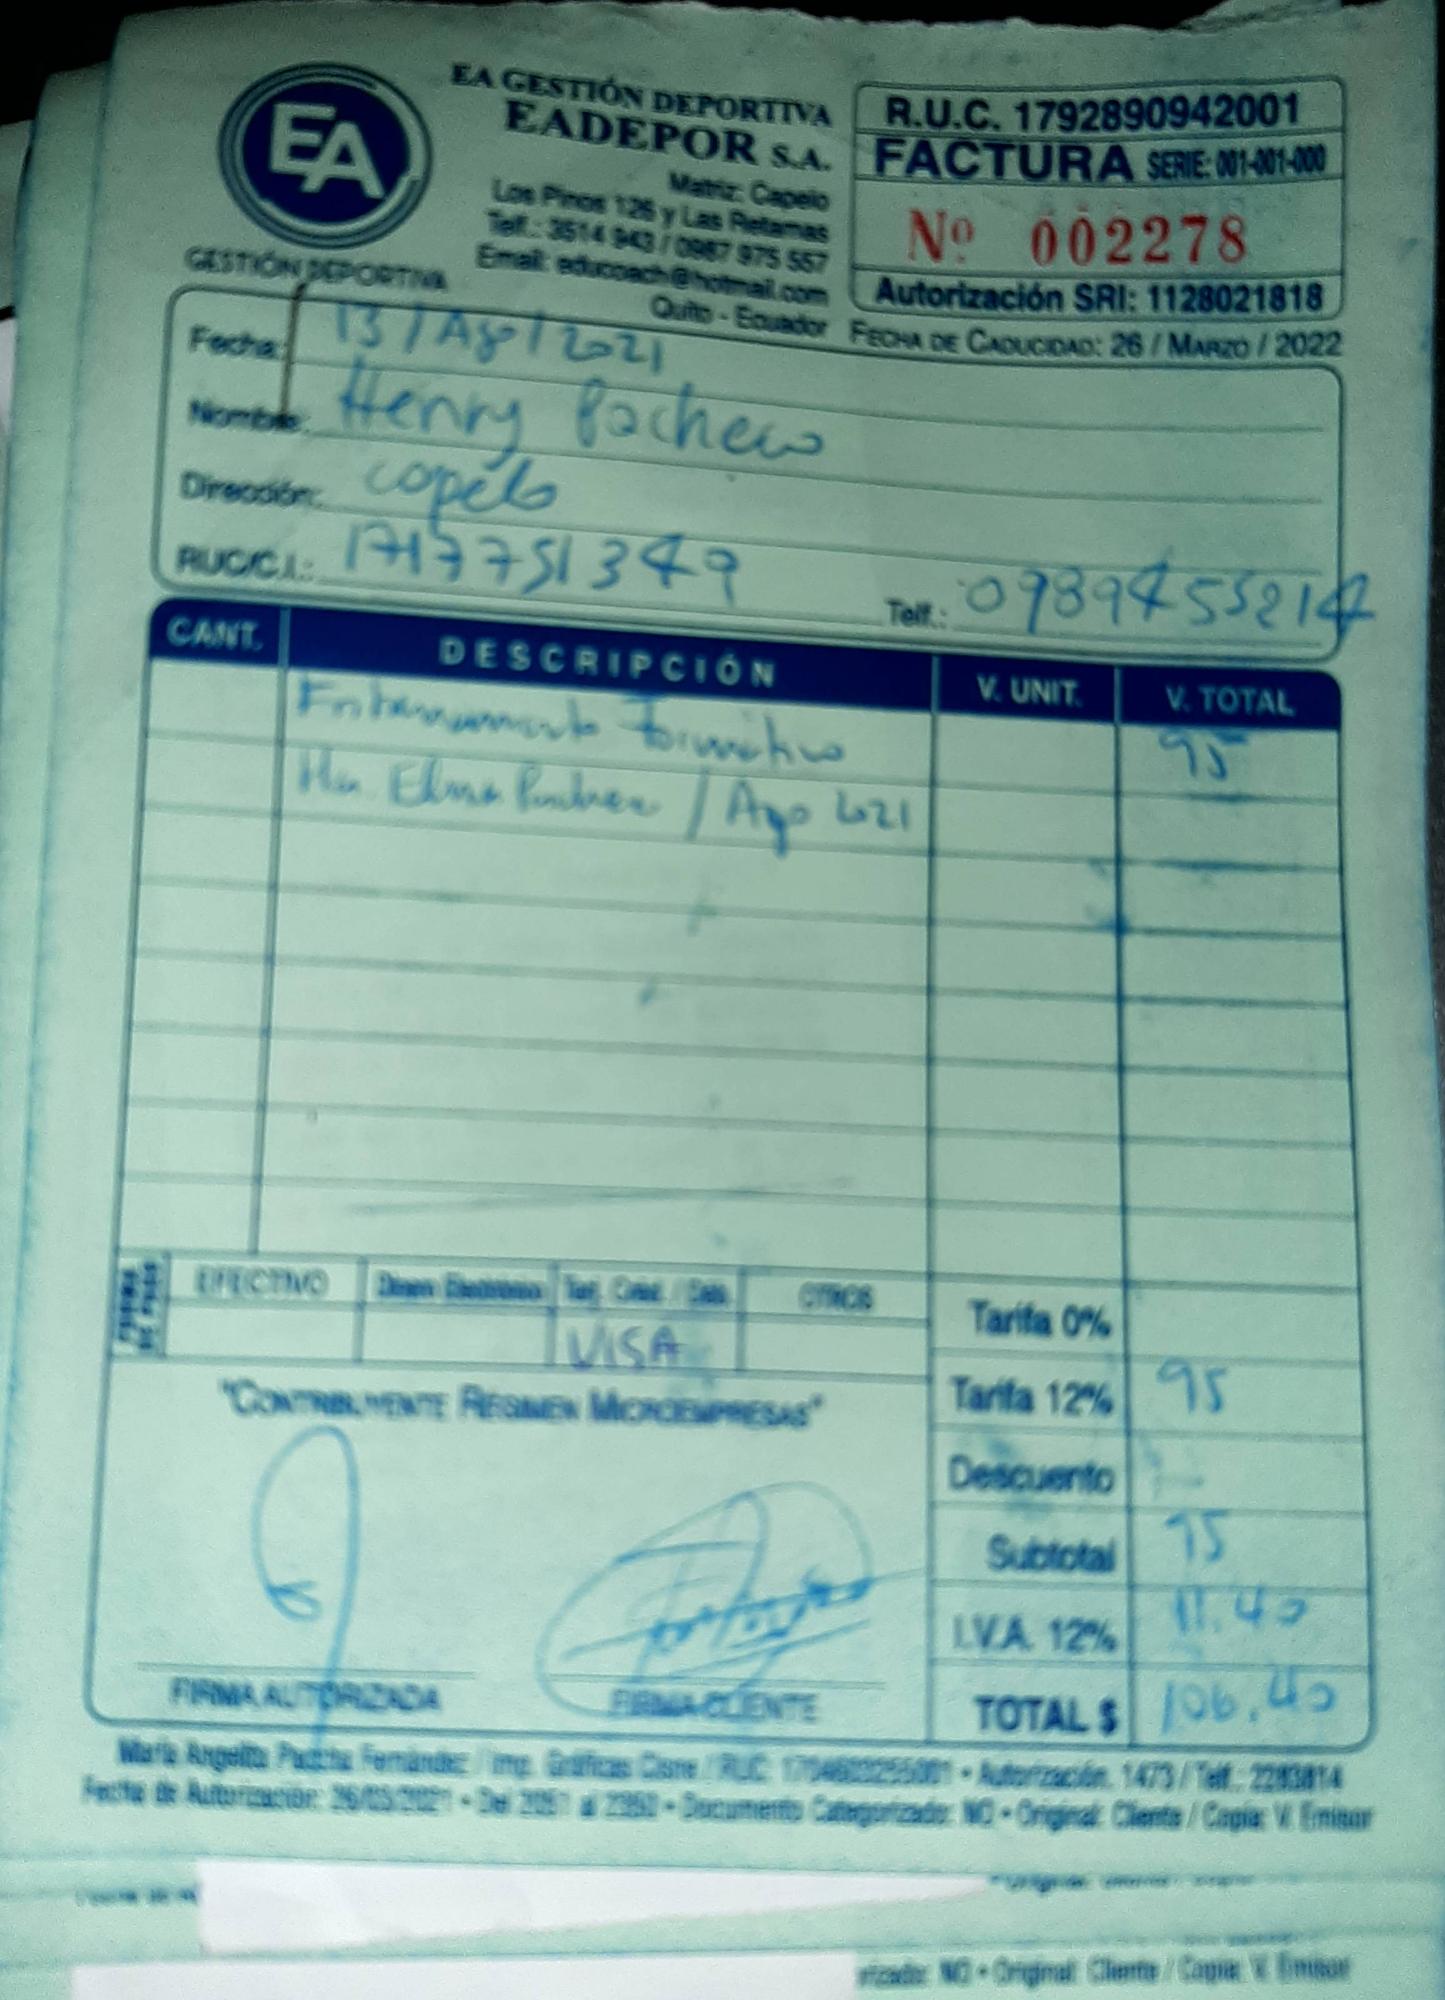 EA
GESTIÓN DEPORTIVA
EA GESTIÓN DEPORTIVA
EADEPOR S.A.
Matriz: Capelo
Los Pinos 126 y Las Retamas
Telf.: 3514 943 / 0987 975 557
Email: educoach@hotmail.com
Quito - Ecuador
R.U.C. 1792890942001
FACTURA SERIE: 001-001-000
Nº 002278
Autorización SRI: 1128021818
FECHA DE CADUCIDAD: 26 / MARZO / 2022
Fecha: 13 / Ago / 2021
Nombre: Henry Pacheco
Dirección: Capelo
RUC/C.I.: 1717751349 Telf.: 0989455214
CANT. DESCRIPCIÓN V. UNIT. V. TOTAL
Entrenamiento Formativo 95
/ Ago 2021
EFECTIVO Dinero Electrónico Tarj. Créd. / Deb. OTROS
VISA
Tarifa 0%
Tarifa 12% 95
Descuento
Subtotal 95
I.V.A. 12% 11.40
TOTAL $ 106.40
"CONTRIBUYENTE RÉGIMEN MICROEMPRESAS"
FIRMA AUTORIZADA FIRMA CLIENTE
María Angelita Fernández / Imp. Gráficas Cisne / RUC: • Autorización. 1473 / Telf.: 2283814
Fecha de Autorización: 26/03/2021 • Del al • Documento Categorizado: NO • Original: Cliente / Copia: V. Emisor
NO • Original: Cliente / Copia: V. Emisor